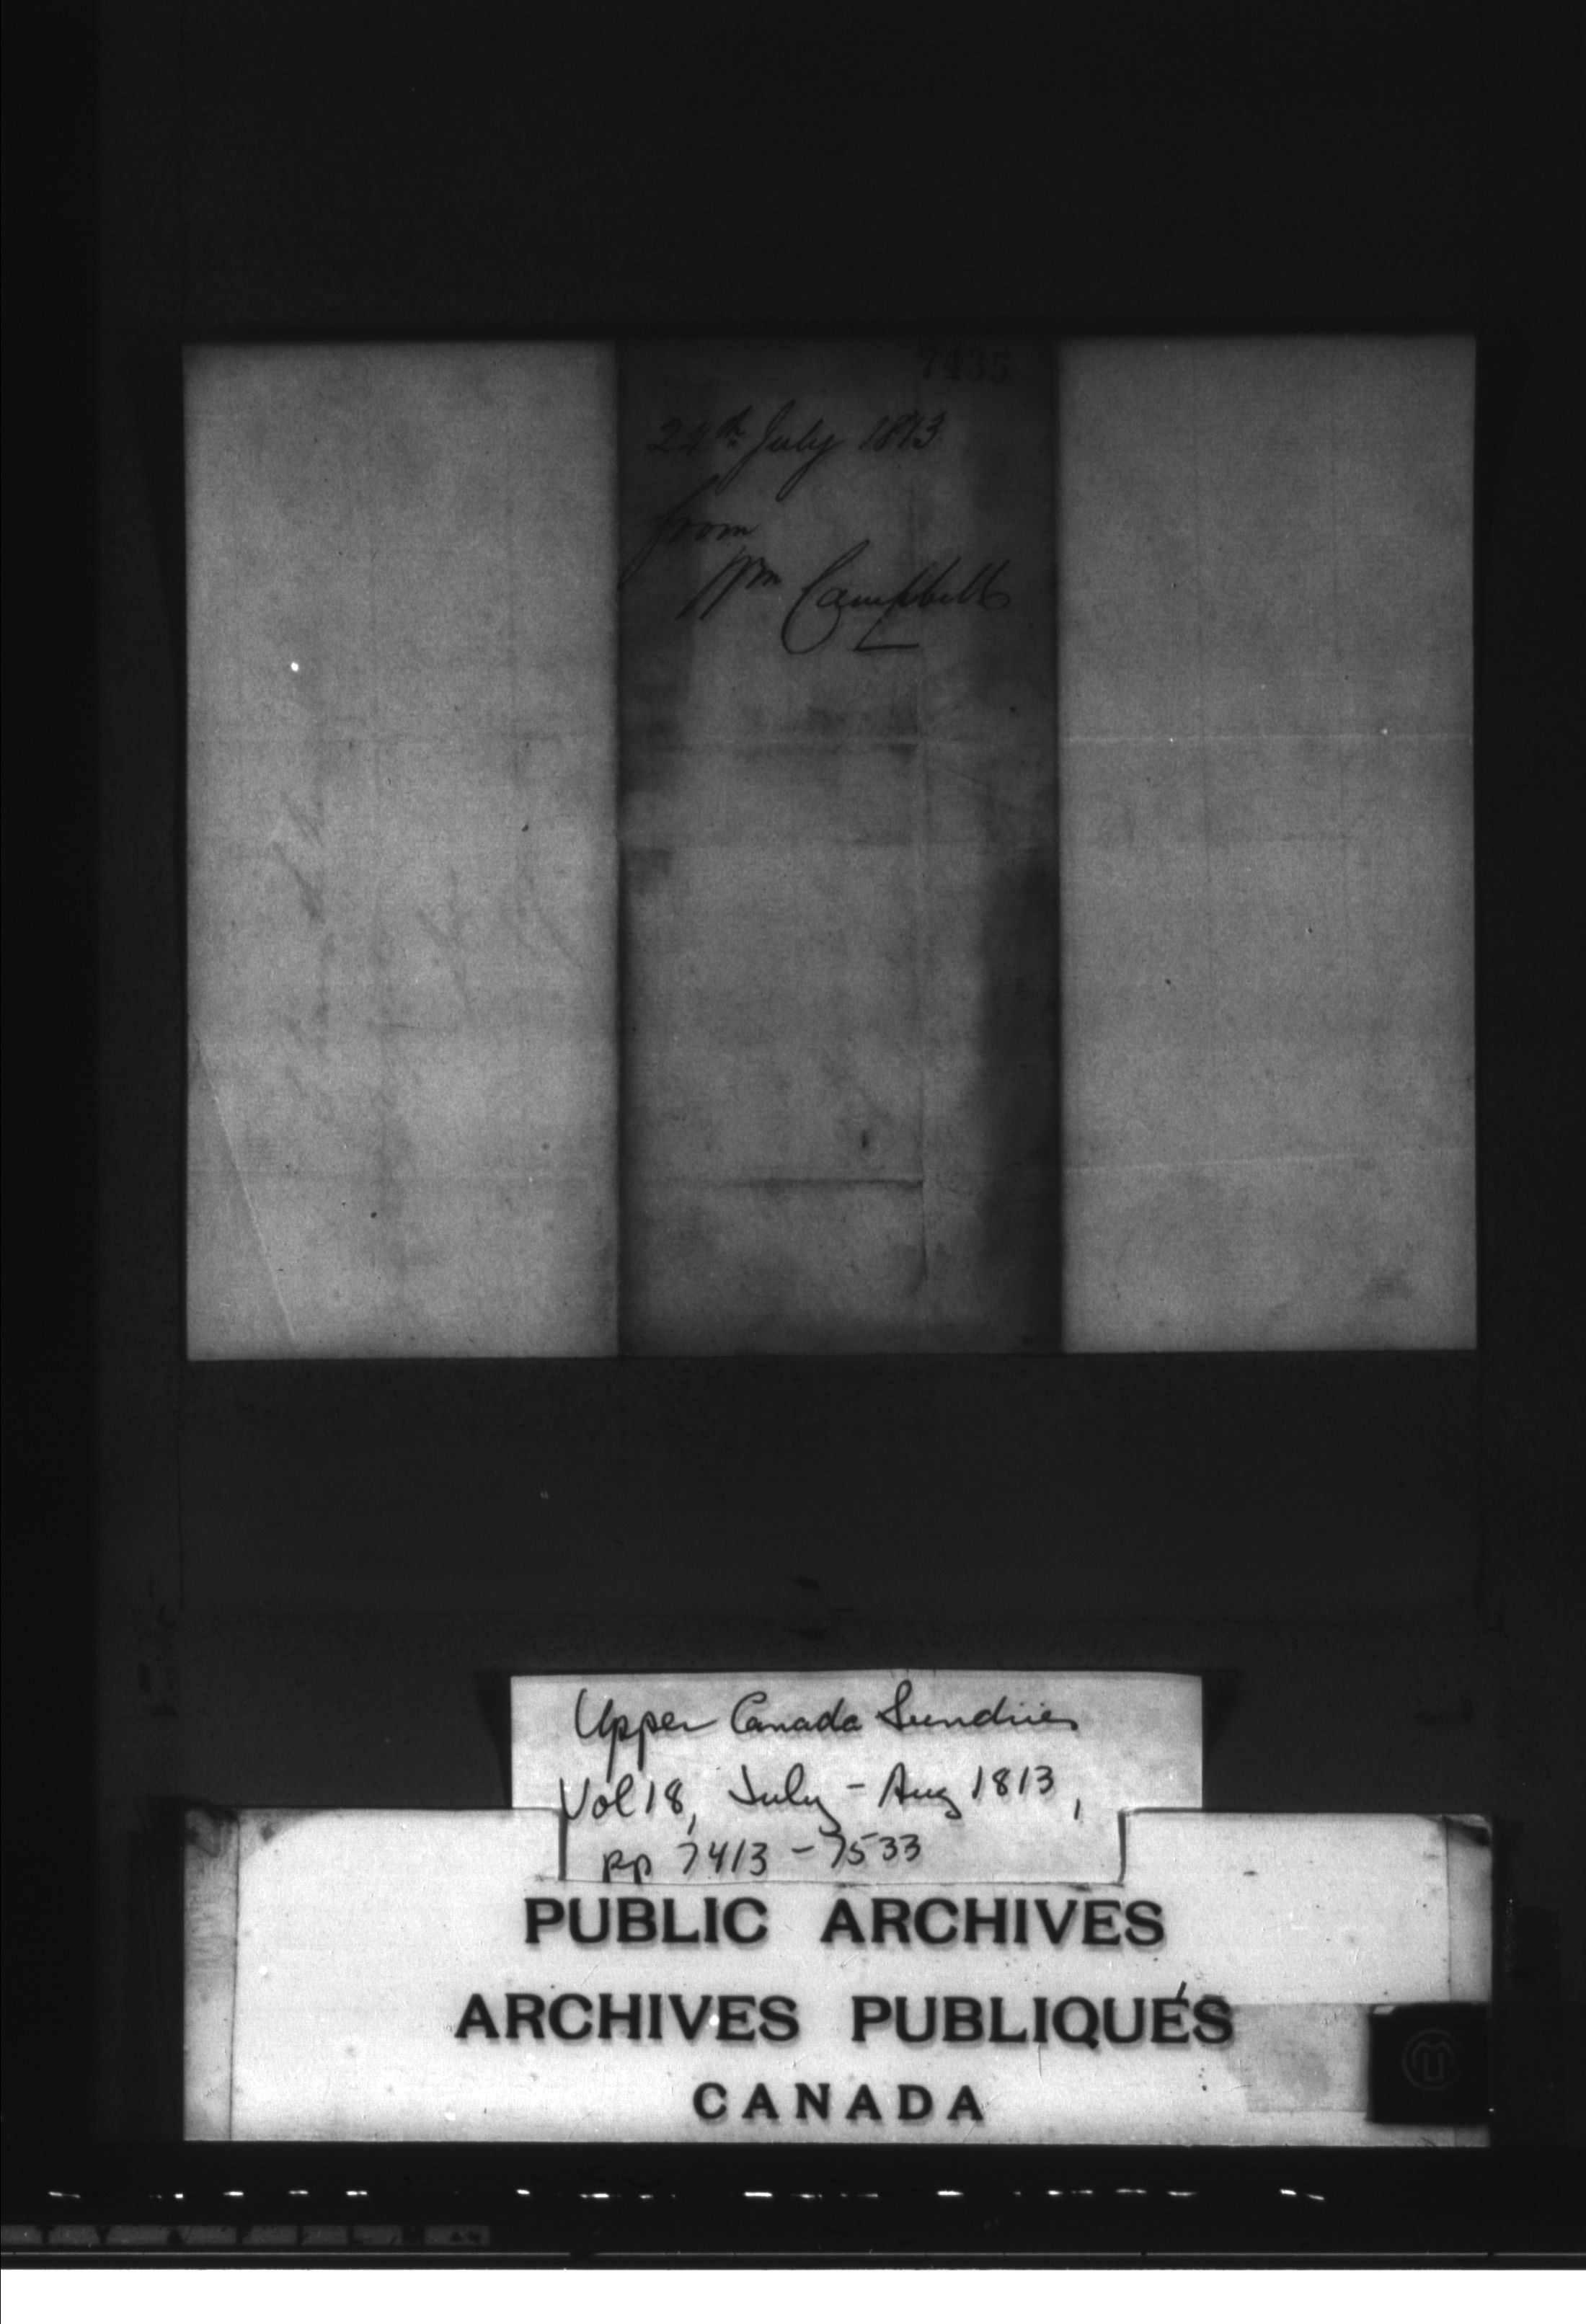 7435
24th July 1813
from
Wm Campbell
Upper Canada Sundries
Vol 18, July - Aug 1813,
pp 7413 - 7533
PUBLIC ARCHIVES
ARCHIVES PUBLIQUÉS
CANADA